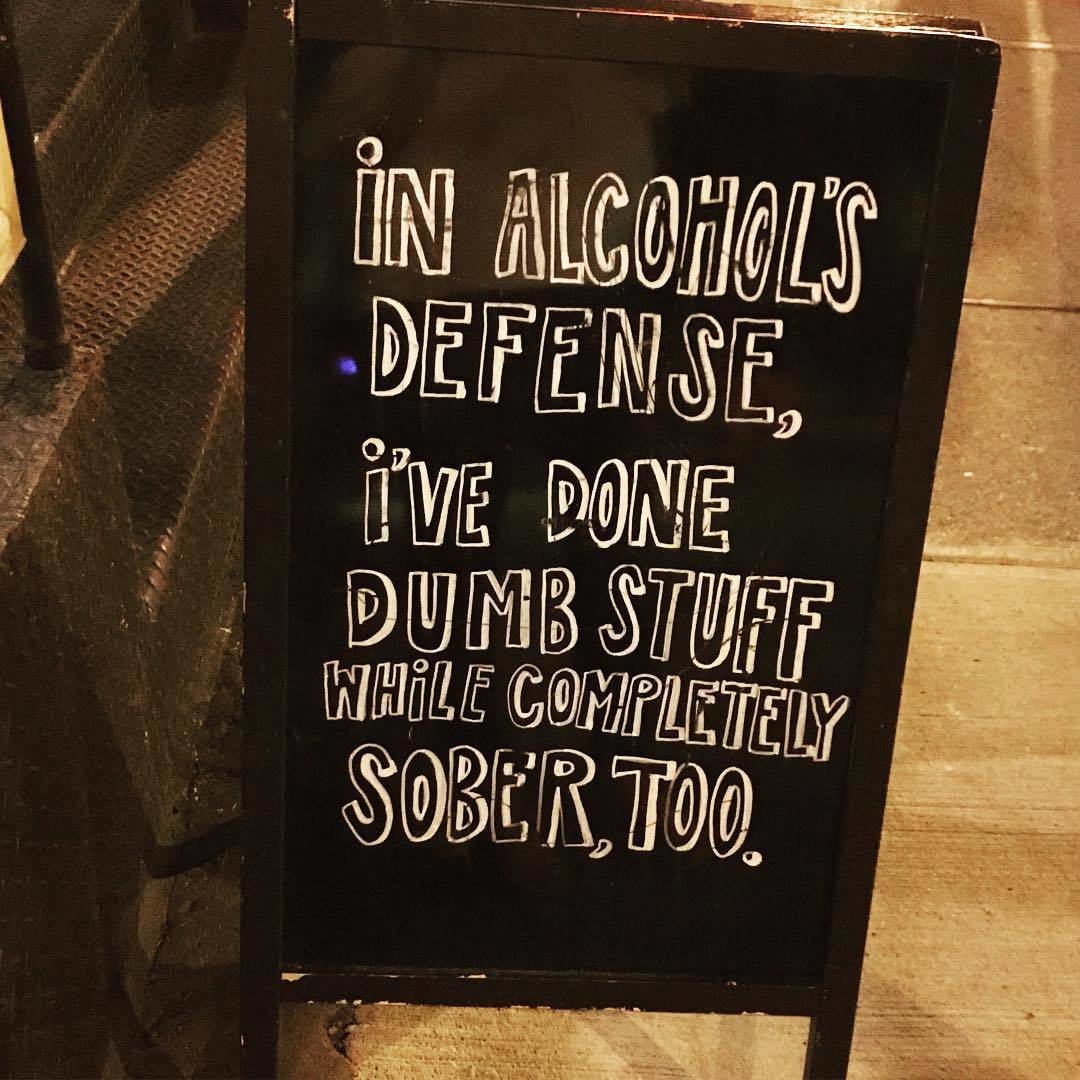 iN ALCOHOL'S
DEFENSE,
i'VE DONE
DUMB STUFF
WHiLE COMPLETELY
SOBER, TOO.